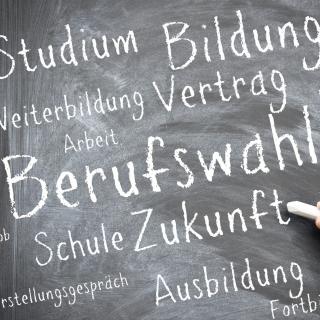 Studium Bildung
Weiterbildung Vertrag
Arbeit
Berufswahl
ob
Schule Zukunft
rstellungsgespräch Ausbildung
Fortbi